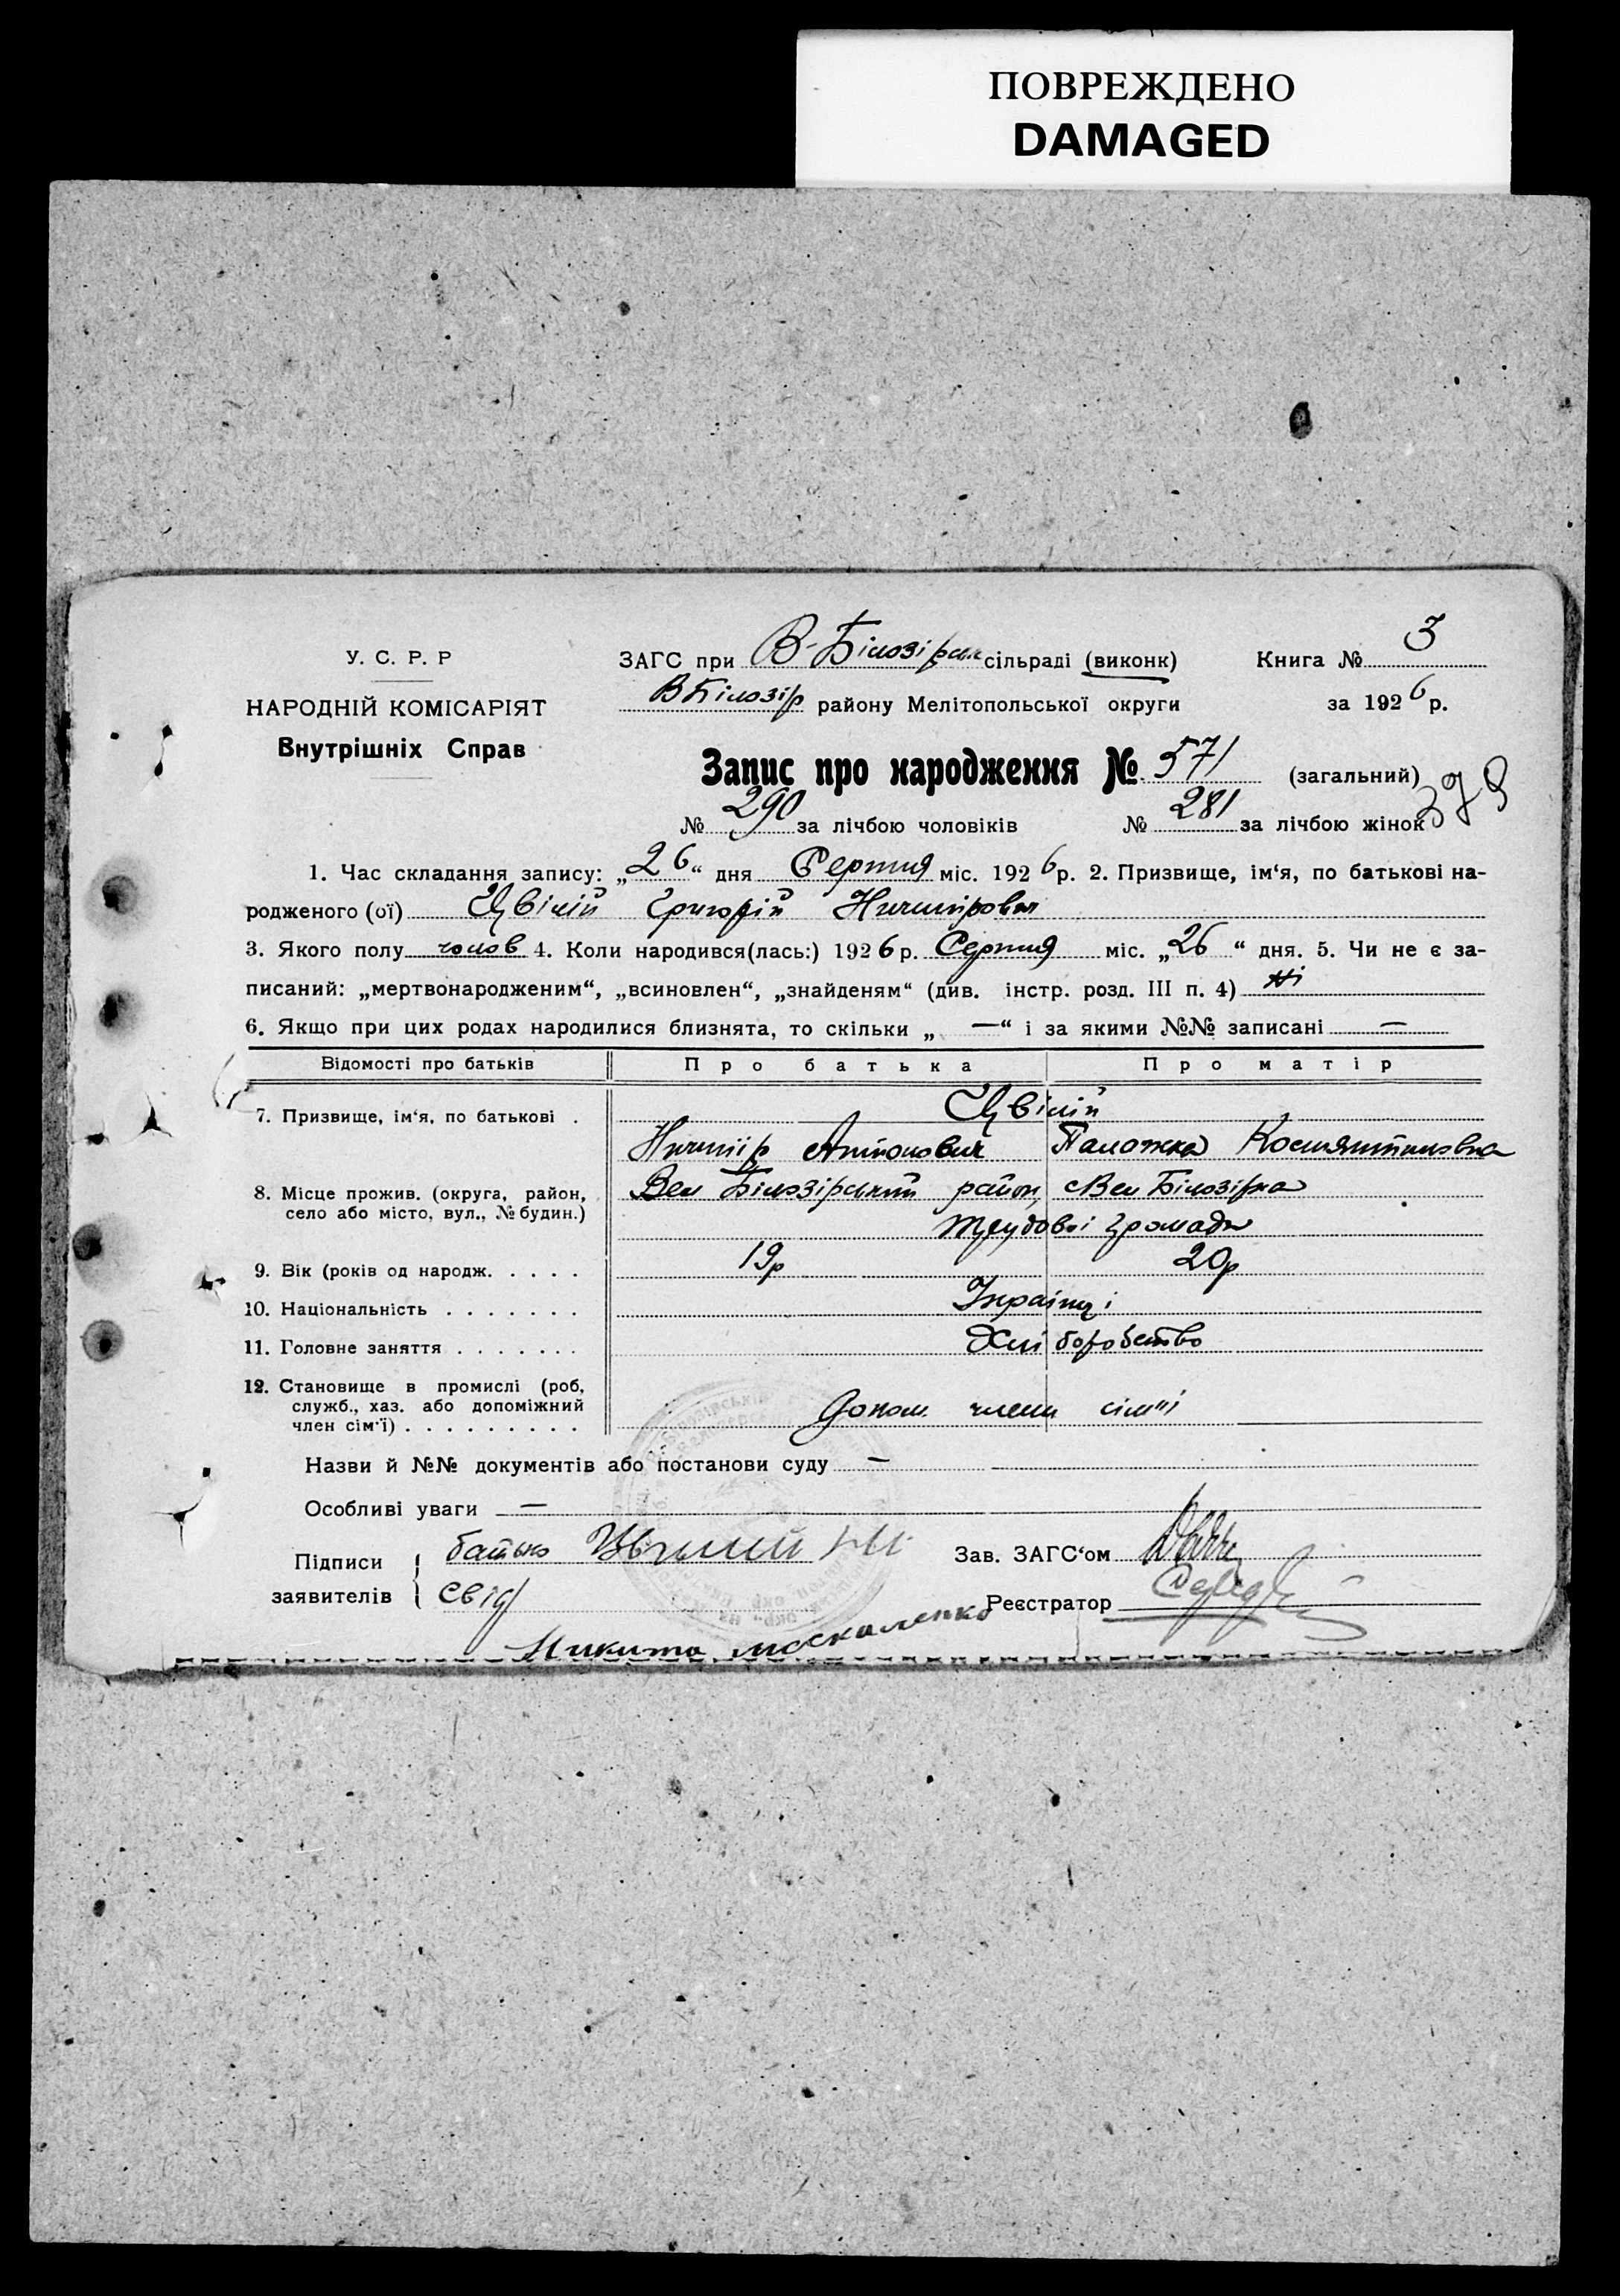 ПОВРЕЖДЕНО
DAMAGED
У. С. Р. Р
НАРОДНІЙ КОМІСАРІЯТ
Внутрішніх Справ
ЗАГС при В-Білозірськ сільраді (виконк)
В Білозір району Мелітопольської округи
Книга № 3
за 1926 р.
Запис про народження № 571 (загальний)
379
№ 290 за лічбою чоловіків № 281 за лічбою жінок
1. Час складання запису: „26“ дня Серпня міс. 1926 р. 2. Призвище, ім‘я, по батькові на-
родженого (ої) Цвілій Григорій Ничипірович
3. Якого полу чолов 4. Коли народився(лась:) 1926 р. Серпня міс. „26“ дня. 5. Чи не є за-
писаний: „мертвонародженим“, „всиновлен“, „знайденям“ (див. інстр. розд. III п. 4) Ні
6. Якщо при цих родах народилися близнята, то скільки „ — “ і за якими №№ записані —
Відомості про батьків Про батька Про матір
7. Призвище, ім‘я, по батькові . Цвілій
Ничипір Антонович Палажка Костянтиновна
8. Місце прожив. (округа, район, село або місто, вул., № будин.) Вел Білозірський район, Вел Білозірка
трудової громади
9. Вік (років од народж. . . . . 19р 20р
10. Національність . . . . . . . Українці
11. Головне заняття . . . . . . . Хліборобство
12. Становище в промислі (роб,
служб., хаз. або допоміжний
член сім‘ї) . . . . . . . . . допом. члени сім'ї
Назви й №№ документів або постанови суду —
Особливі уваги —
Підписи заявителів { батько Цвілий Н
свід
Микита москаленко
Зав. ЗАГС‘ом
Реєстратор